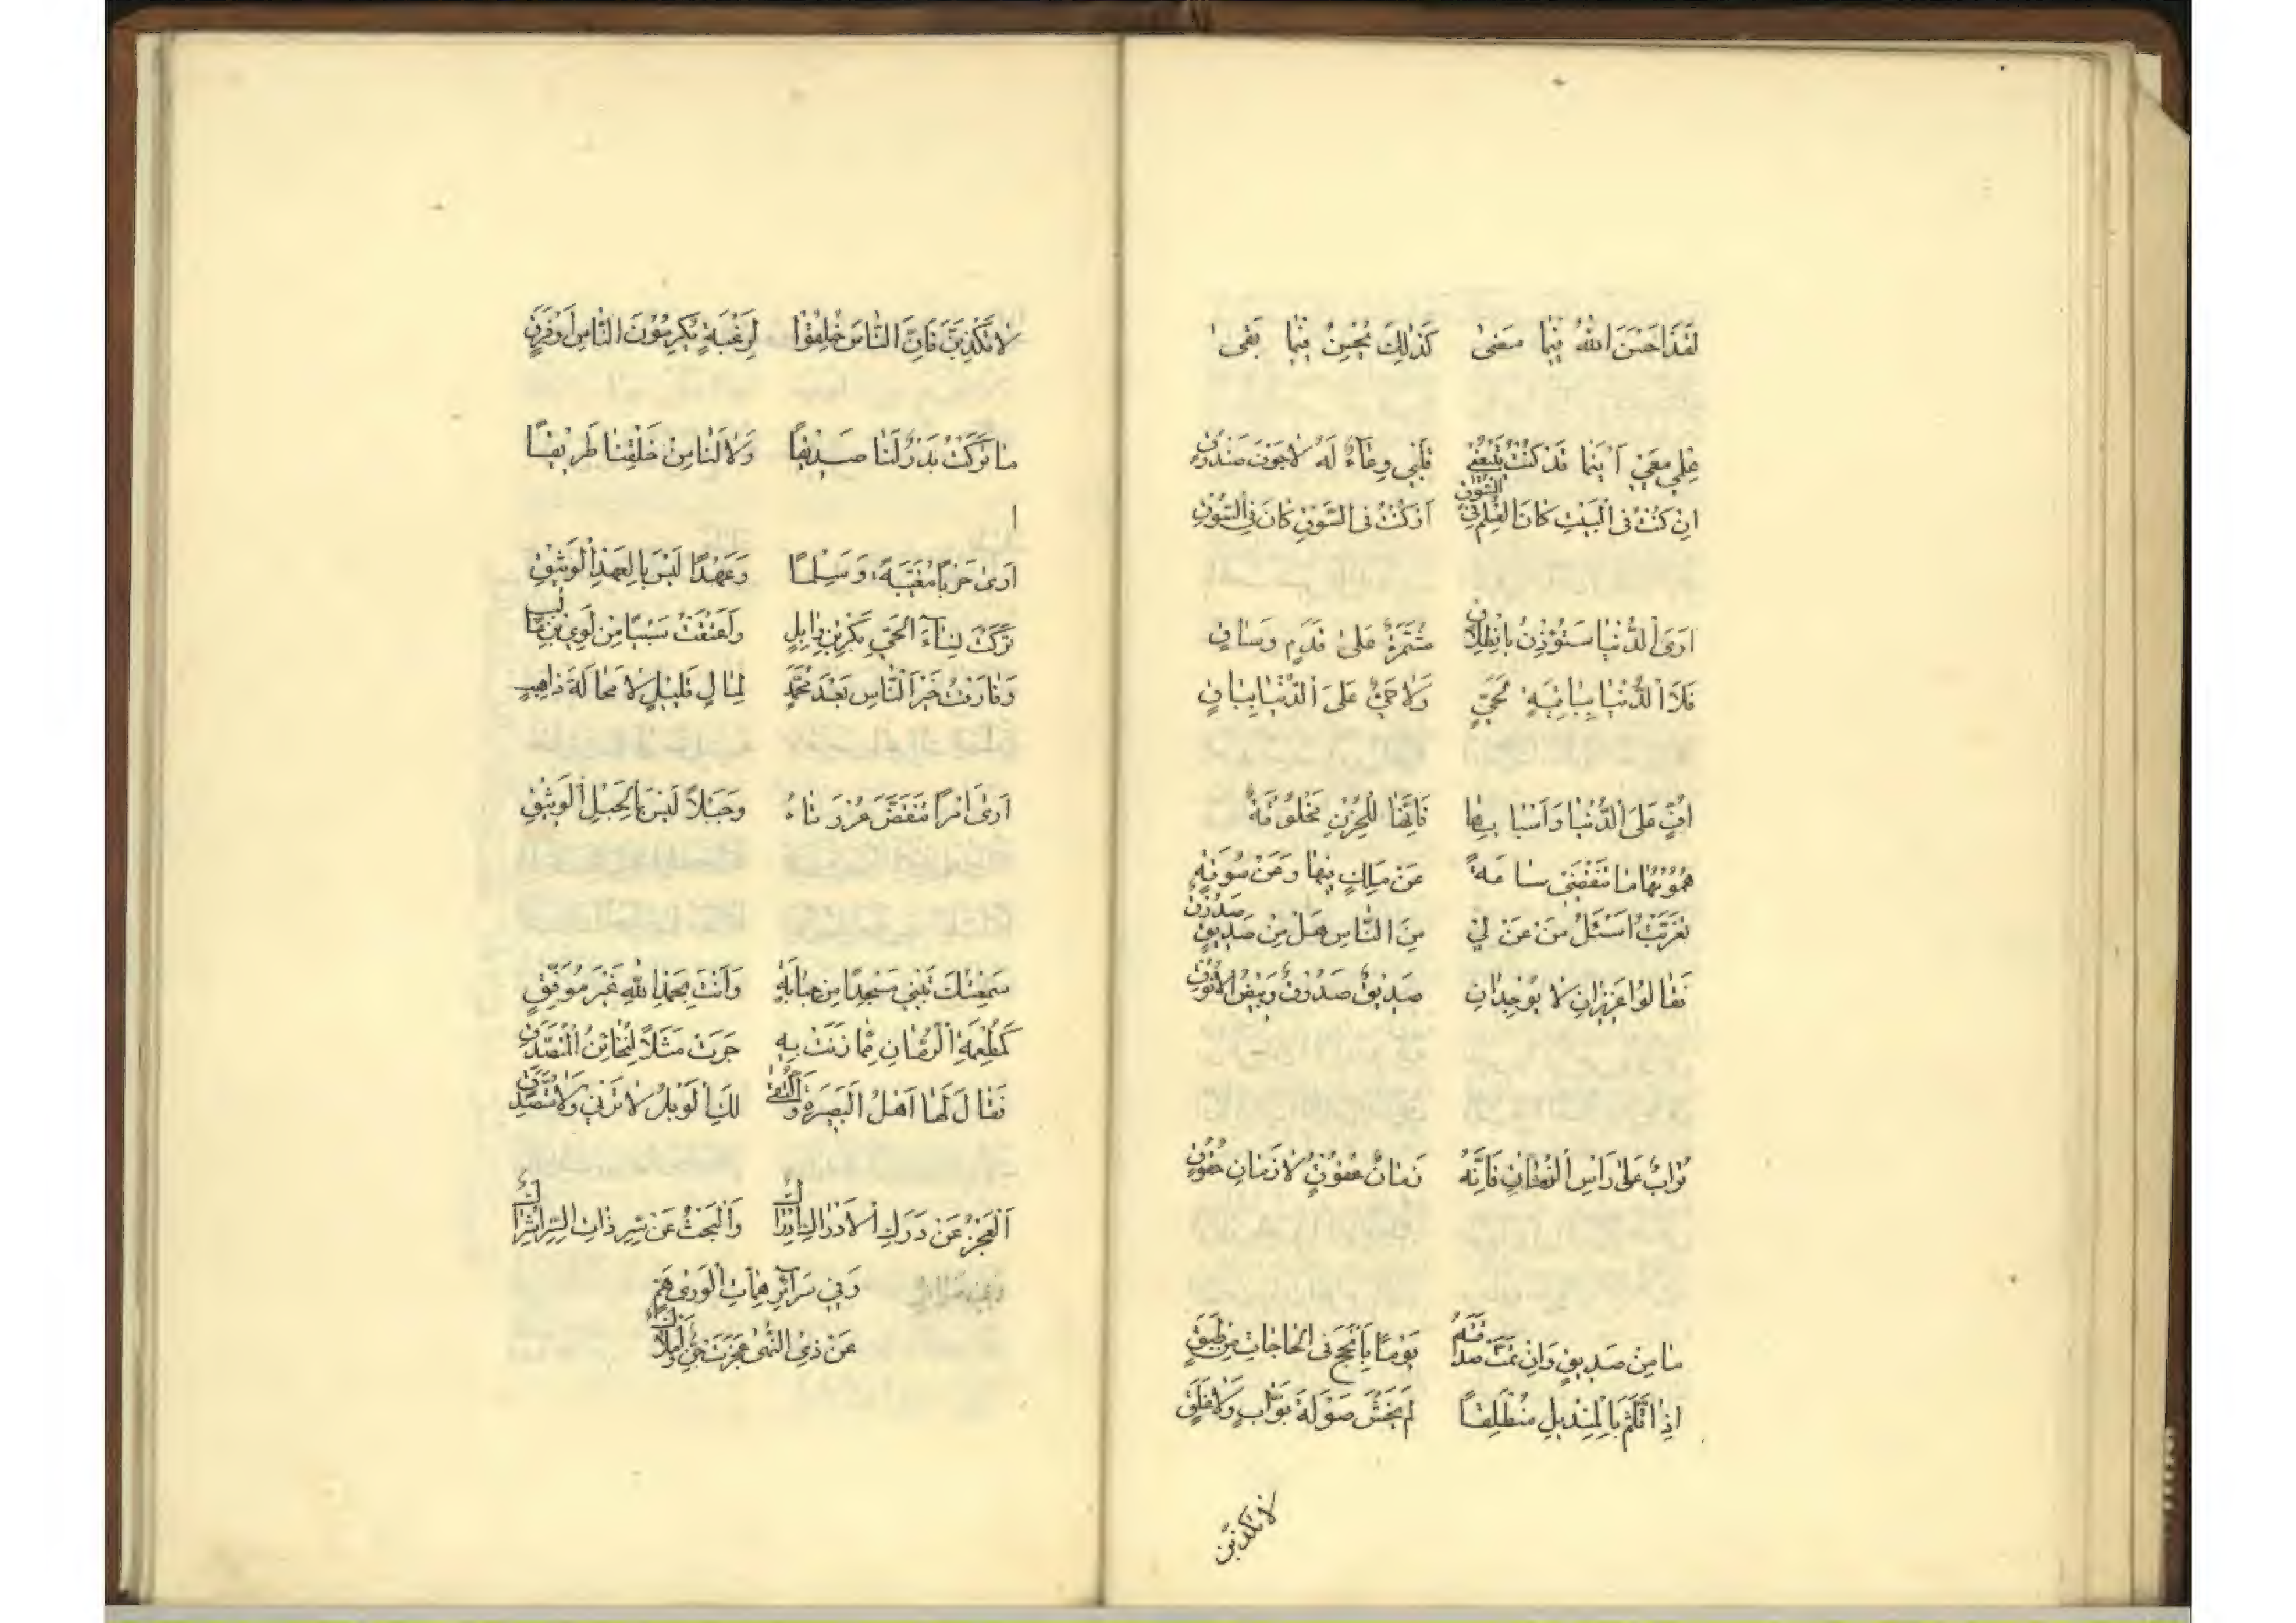 لَقَدْ اَحْسَنَ اللهُ فِيْمَا مَضىٰ كَذٰلِكَ يُحْسِنُ فِيْمَا بَقىٰ
عِلْمِي مَعِيْ اَيْنَمَا قَدْ كُنْتُ يَتْبَعُنِي قَلْبِي وِعَاءٌ لَهُ لَا جَوْفَ صَنْدُوقِ
اِنْ كُنْتُ فِي الْبَيْتِ كَانَ الْعِلْمُ فِي السُّوقِ اَوْ كُنْتُ فِي السُّوْقِ كَانَ فِي السُّوْقِ
اَرَى الدُّنْيَا سَتُؤْذِنُ بِانْطِلَاقِ مُشَمِّرَةٌ عَلىٰ قَدَمٍ وَسَاقِ
فَلَا الدُّنْيَا بِبَاقِيَةٍ لِحَيٍّ وَلَا حَيٌّ عَلَى الدُّنْيَا بِبَاقِ
اُفٍّ عَلَى الدُّنْيَا وَاَسْبَابِهَا فَاِنَّهَا لِلْحُزْنِ مَخْلُوقَةٌ
هُمُوْمُهَا مَا تَنْقَضِيْ سَاعَةً عَنْ مَلِكٍ فِيْهَا وَعَنْ سُوْقَةٍ
تَغَرَّبْتُ اَسْئَلُ مَنْ عَنَّ لِيْ مِنَ النَّاسِ هَلْ مِنْ صَدِيقٍ صَدُوْقٍ
فَقَالُوا عَزِيْزَانِ لَا يُوْجَدَانِ صَدِيْقٌ صَدُوْقٌ وَبَيْضُ الْاَنُوْقِ
تُرَابٌ عَلىٰ رَاْسِ الزَّمَانِ فَاِنَّهُ زَمَانُ عُقُوْقٍ لَا زَمَانُ حُقُوْقٍ
مَا مِنْ صَدِيْقٍ وَاِنْ تَمَّتْ صَدَاقَتُهُ يَوْمًا بِاَنْجَحَ فِي الْحَاجَاتِ مِنْ طَبَقٍ
اِذَا تَلَثَّمَ بِالْمِنْدِيْلِ مُنْطَلِقًا لَمْ يَخْشَ صَوْلَةَ بَوَّابٍ وَلَا غَلَقٍ
لَا تَكْذِبَنَّ
لَا تَكْذِبَنَّ فَاِنَّ النَّاسَ خُلِقُوْا لِرَغْبَةٍ يُكْرِمُوْنَ النَّاسَ اَوْ فَرَقٍ
مَا تَرَكَتْ بَدْرٌ لَنَا صَدِيْقًا وَلَا لَنَا مِنْ خَلْفِنَا طَرِيْقًا
ا
اَرىٰ حَرْبًا مُغَيَّبَةً وَسَلْمًا وَعَهْدًا لَيْسَ بِالْعَهْدِ الْوَثِيْقِ
تَرَكْتُ نِسَاءَ الْحَيِّ بَكْرِ بْنِ وَايِلٍ وَاَعْتَقْتُ سَبْيًا مِنْ لُوَيِّ بْنِ غَالِبٍ
وَفَارَقْتُ خَيْرَ النَّاسِ بَعْدَ مُحَمَّدٍ لِمَالٍ قَلِيْلٍ لَا مَحَالَةَ ذَاهِبٍ
اَرىٰ اَمْرًا تَنَقَّضَ عُرْوَتَاهُ وَحَبْلًا لَيْسَ بِالْحَبْلِ الْوَثِيْقِ
سَمِعْتُكَ تَبْنِي مَسْجِدًا مِنْ جِبَايَةٍ وَاَنْتَ بِحَمْدِ اللهِ غَيْرُ مُوَفَّقٍ
كَمُطْعِمَةِ الرُّمَّانِ مِمَّا زَنَتْ بِهِ جَرَتْ مَثَلًا لِلْخَائِنِ الْمُتَصَدِّقِ
فَقَالَ لَهَا اَهْلُ الْبَصِيْرَةِ وَالتُّقىٰ لَكِ الْوَيْلُ لَا تَزْنِيْ وَلَا تَتَصَدَّقِيْ
اَلْعَجْزُ عَنْ دَرَكِ الْاِدْرَاكِ اِدْرَاكٌ وَالْبَحْثُ عَنْ سِرِّ ذَاتِ السِّرِّ اِشْرَاكٌ
وَفِي سَرَائِرِ هِمَّاتِ الْوَرىٰ هِمَمٌ
عَنْ ذِي النُّهىٰ عَجَزَتْ جِنٌّ وَاَمْلَاكٌ